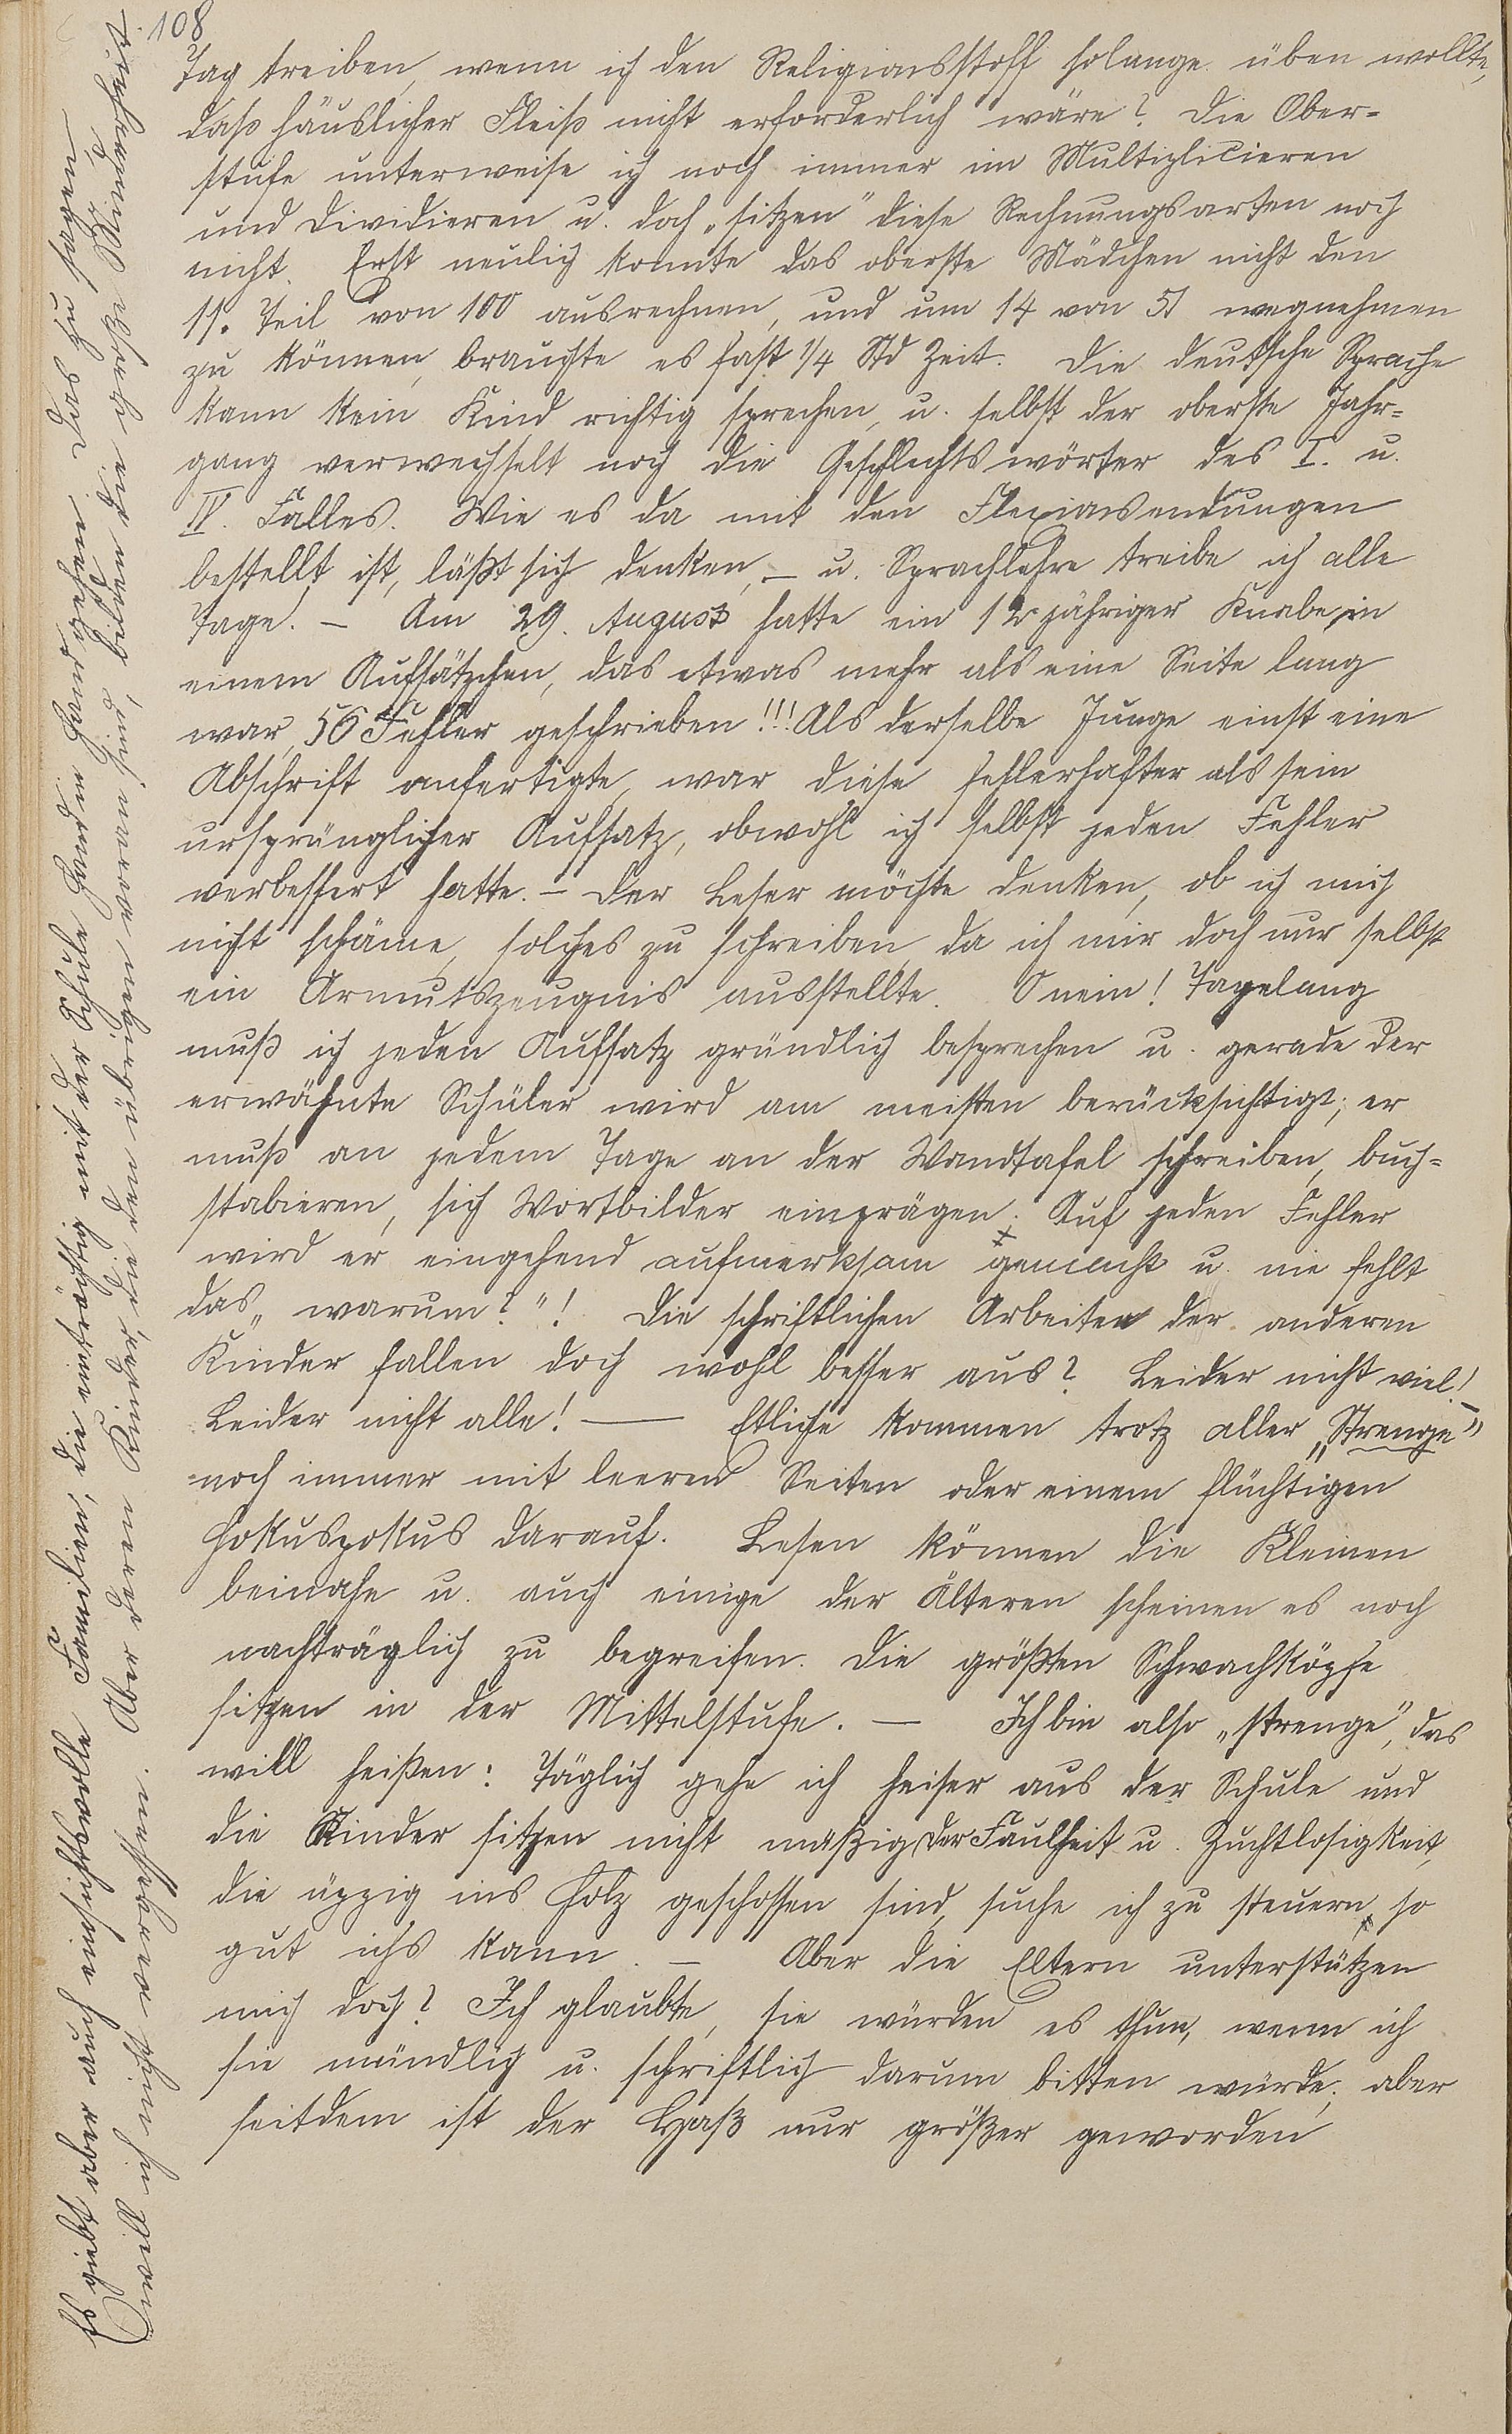 108
Tag treiben, wenn ich den Religionsstoff solange üben wollte,
daß häuslicher Fleiß nicht erforderlich wäre? Die Ober-
stufe unterweise ich noch immer im Multiplicieren
und Dividieren u. doch „sitzen" diese Rechnungsarten noch
nicht. Erst neulich konnte das oberste Mädchen nicht den
11. Teil von 100 ausrechnen, und um 14 von 51 wegnehmen
zu können, brauchte es fast 1/4 Std Zeit. Die deutsche Sprache
kann kein Kind richtig sprechen, u. selbst der oberste Jahr-
gang verwechselt noch die Geschlechtswörter des I. u.
IV. Falles. Wie es da mit den Flexionsendungen
bestellt ist, läßt sich denken, – u. Sprachlehre treibe ich alle
Tage. – Am 29. August hatte ein 12jähriger Knabe in
einem Aufsätzchen, das etwas mehr als eine Seite lang
war, 56 Fehler geschrieben!!! Als derselbe Junge einst eine
Abschrift anfertigte, war diese fehlerhafter als sein
ursprünglicher Aufsatz, obwohl ich selbst jeden Fehler
verbessert hatte. – Der Leser möchte denken, ob ich mich
nicht schäme, solches zu schreiben, da ich mir doch nur selbst
ein Armutszeugnis ausstellte. O nein! Tagelang
muß ich jeden Aufsatz gründlich besprechen u. gerade der
erwähnte Schüler wird am meisten berücksichtigt; er
muß an jedem Tage an der Wandtafel schreiben, buch-
stabieren, sich Wortbilder einprägen. Auf jeden Fehler
wird er eingehend aufmerksam gemacht u. nie fehlt
das „warum?"! Die schriftlichen Arbeiten der anderen
Kinder fallen doch wohl besser aus? Leider nicht viel!
Leider nicht alle! — Etliche kommen trotz aller „Strenge"
noch immer mit leeren Seiten oder einem flüchtigen
Hokuspokus darauf. Lesen können die Kleinen
beinahe u. auch einige der Älteren scheinen es noch
nachträglich zu begreifen. Die größten Schwachköpfe
sitzen in der Mittelstufe. – Ich bin also „strenge", das
will heißen: Täglich gehe ich heiser aus der Schule und
die Kinder sitzen nicht mäßig, der Faulheit u. Zuchtlosigkeit,
die üppig ins Holz geschossen sind, suche ich zu steuern, so
gut ichs kann. – Aber die Eltern unterstützen
mich doch? Ich glaubte, sie würden es thun, wenn ich
sie mündlich u. schriftlich darum bitten würde; aber
seitdem ist der Haß nur größer geworden
Es giebt aber auch einsichtsvolle Familien, die einträchtig mit der Schule Hand in Hand gehen. Das zu sagen
will ich nicht vergessen. Aber deren Kinder, die den übrigen voran sind, bilden die große Minderheit